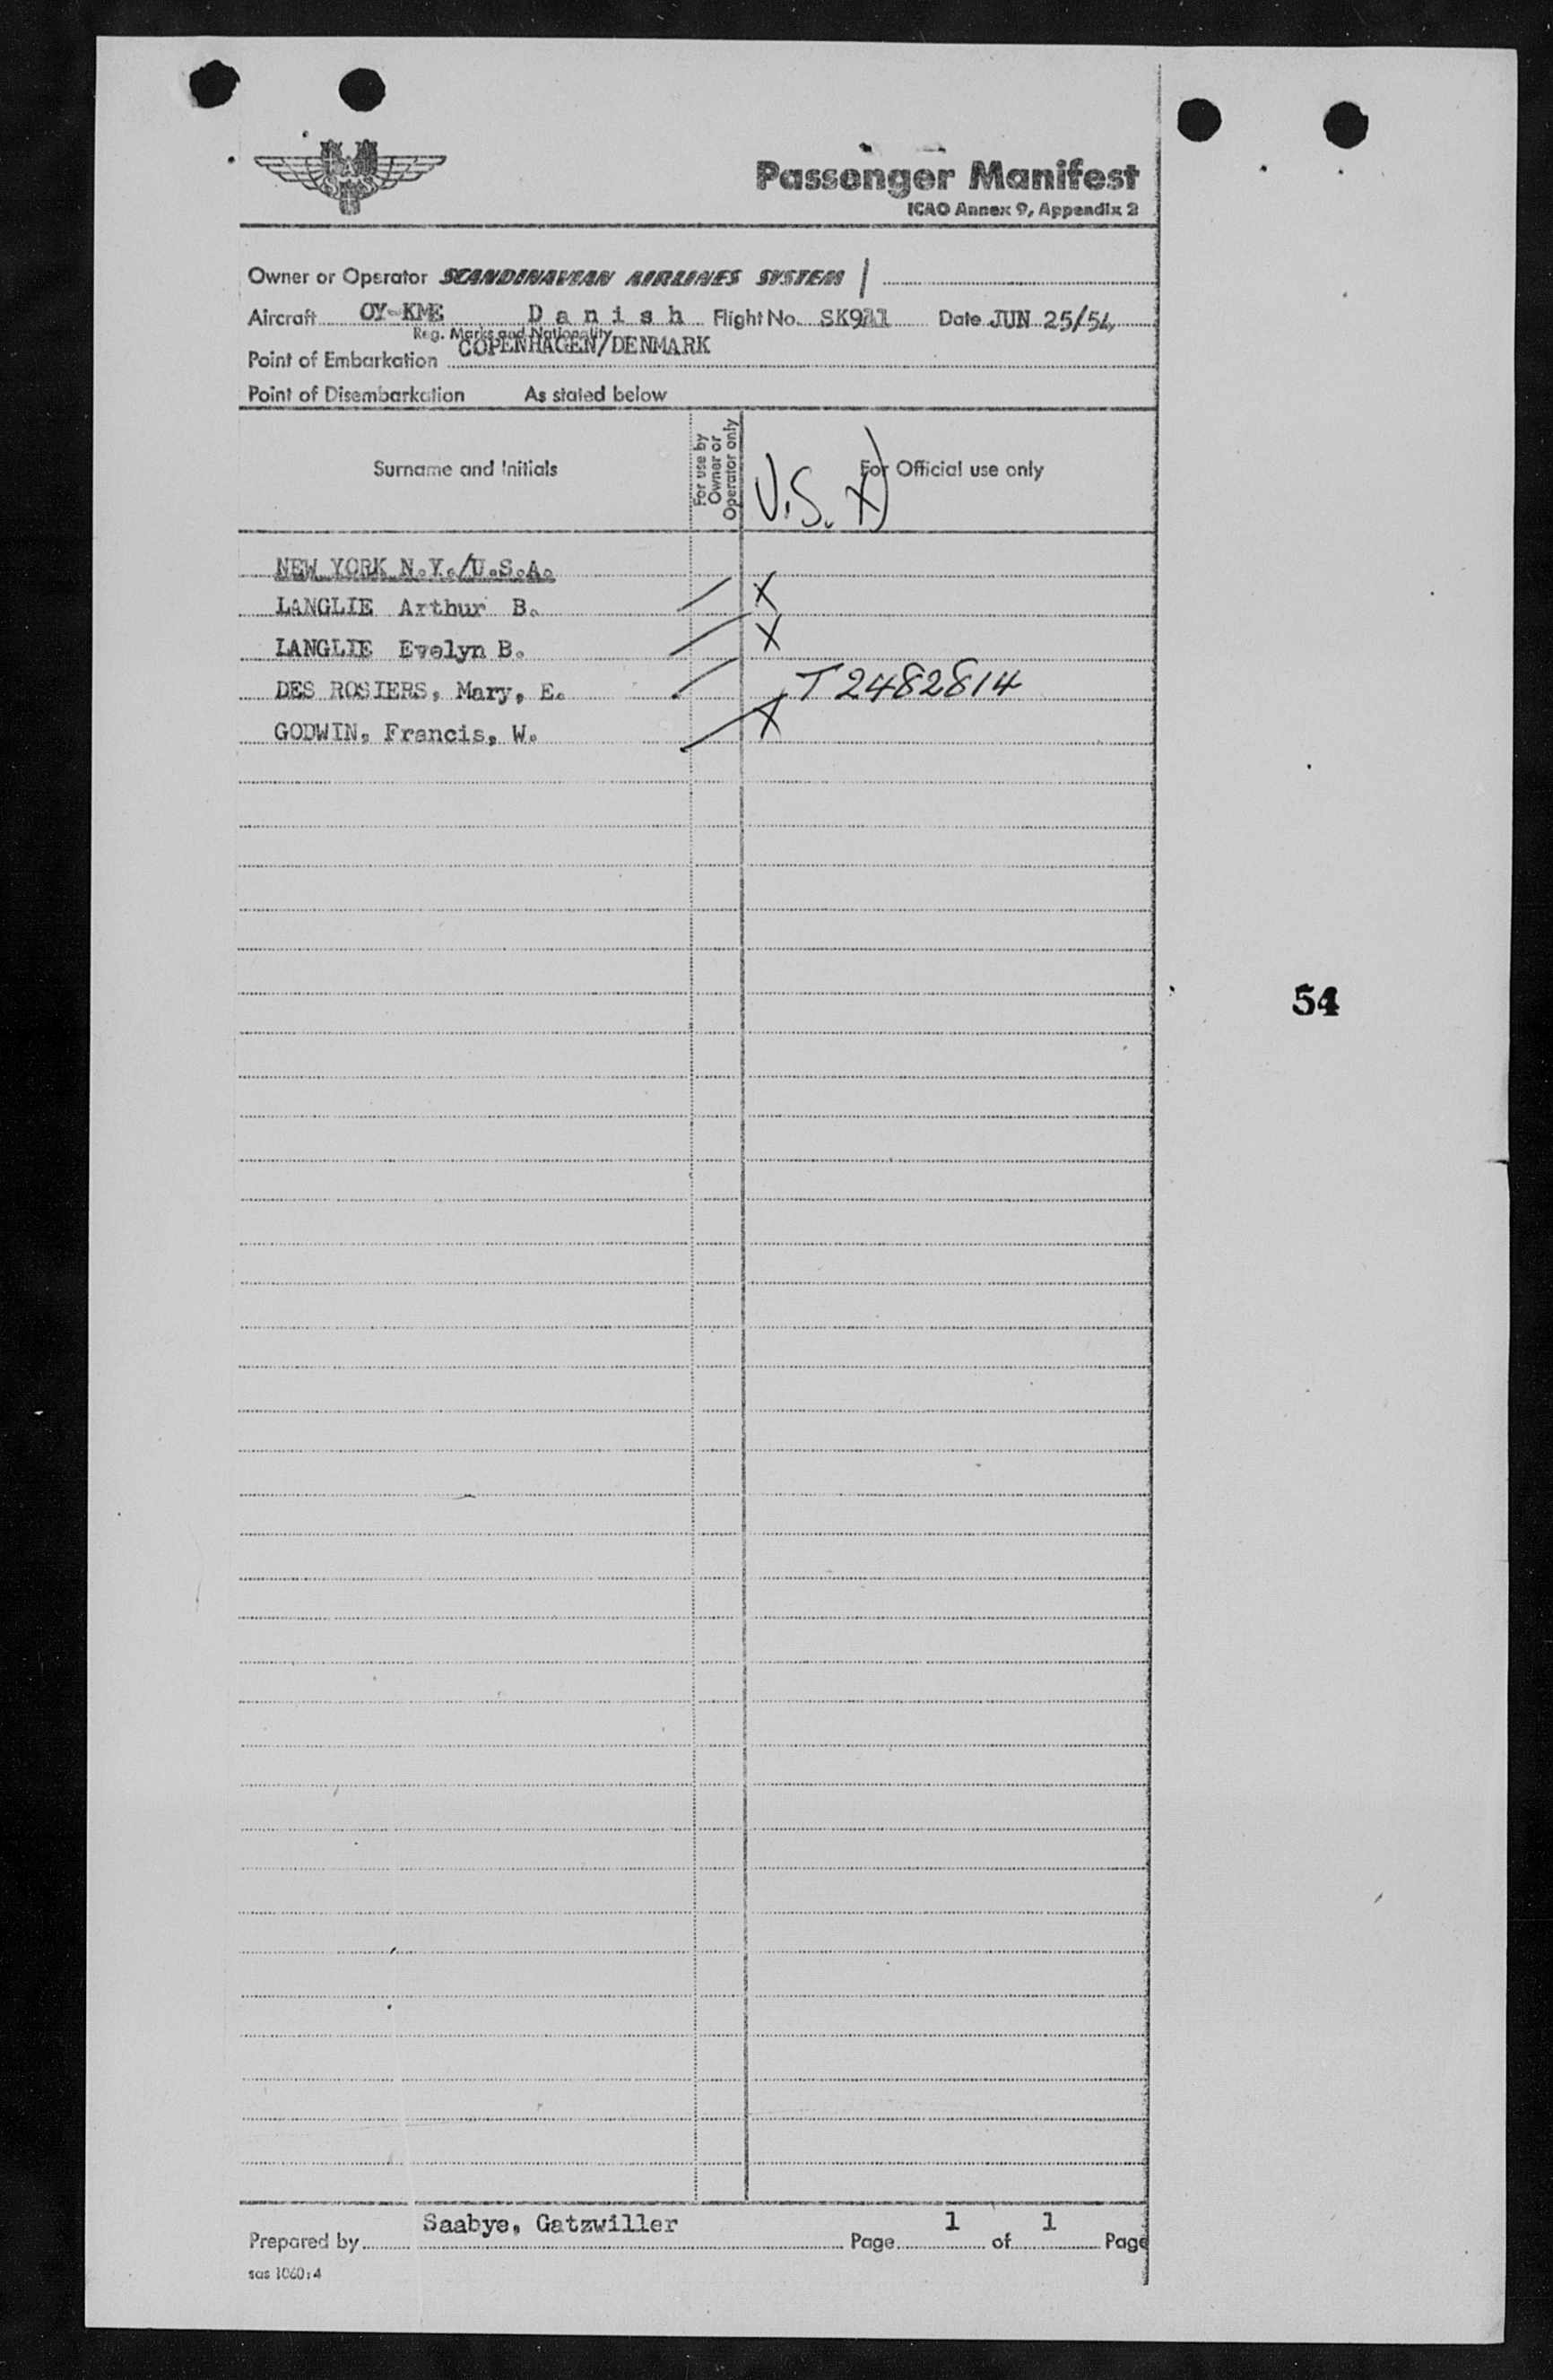 SAS
Passenger Manifest
ICAO Annex 9, Appendix 2
Owner or Operator SCANDINAVIAN AIRLINES SYSTEM
Aircraft OY-KME Danish Flight No. SK921 Date JUN 25/54
Reg. Marks and Nationality
Point of Embarkation COPENHAGEN/DENMARK
Point of Disembarkation As stated below
Surname and Initials
For use by Owner or Operator only
For Official use only
U.S. X)
NEW YORK N.Y./U.S.A.
LANGLIE Arthur B. X
LANGLIE Evelyn B. X
DES ROSIERS, Mary, E. T2482814
GODWIN, Francis, W. X
54
Prepared by Saabye, Gatzwiller Page 1 of 1 Page
sas 1060:4